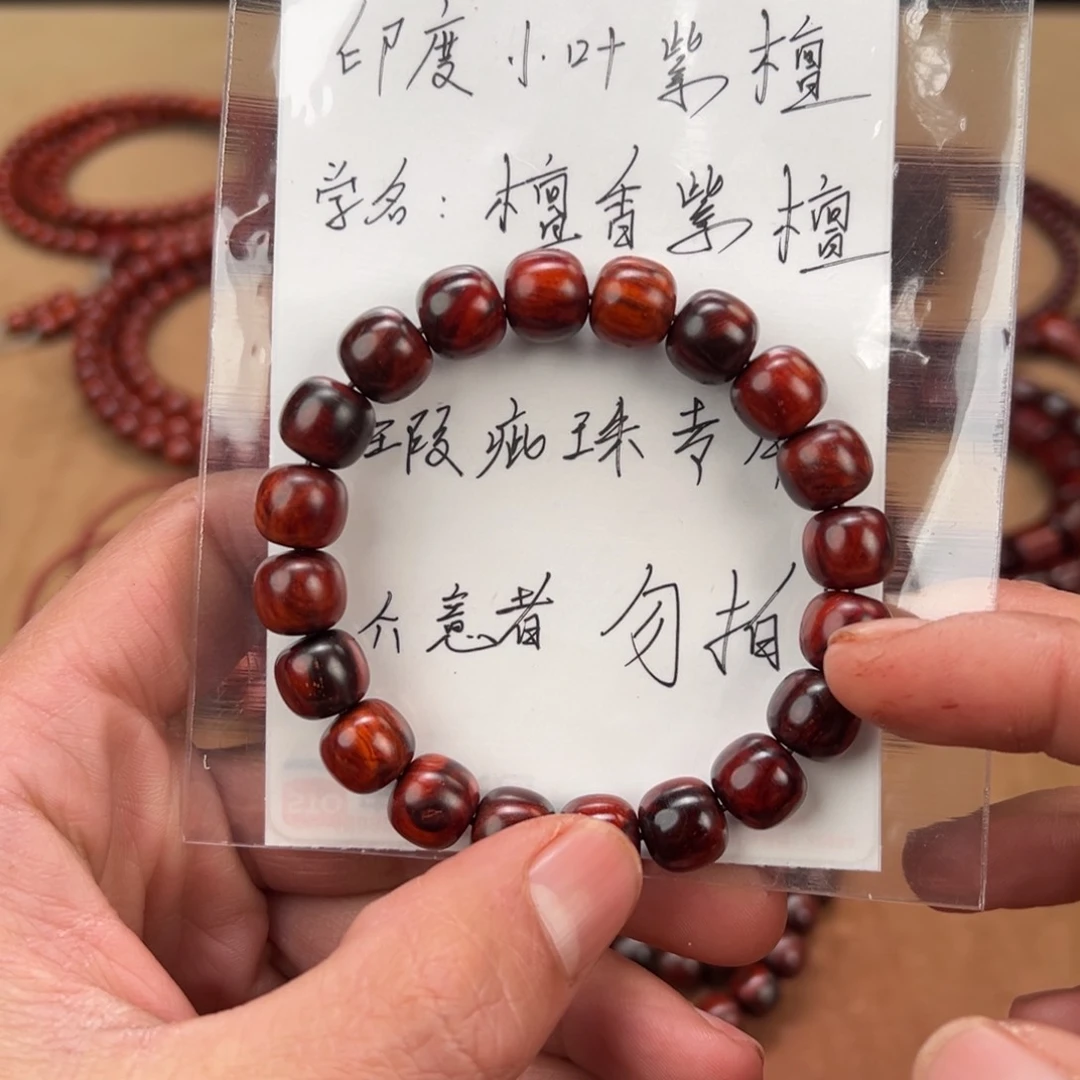 印度小叶紫檀
学名：檀香紫檀
瑕疵珠专
介意者 勿拍